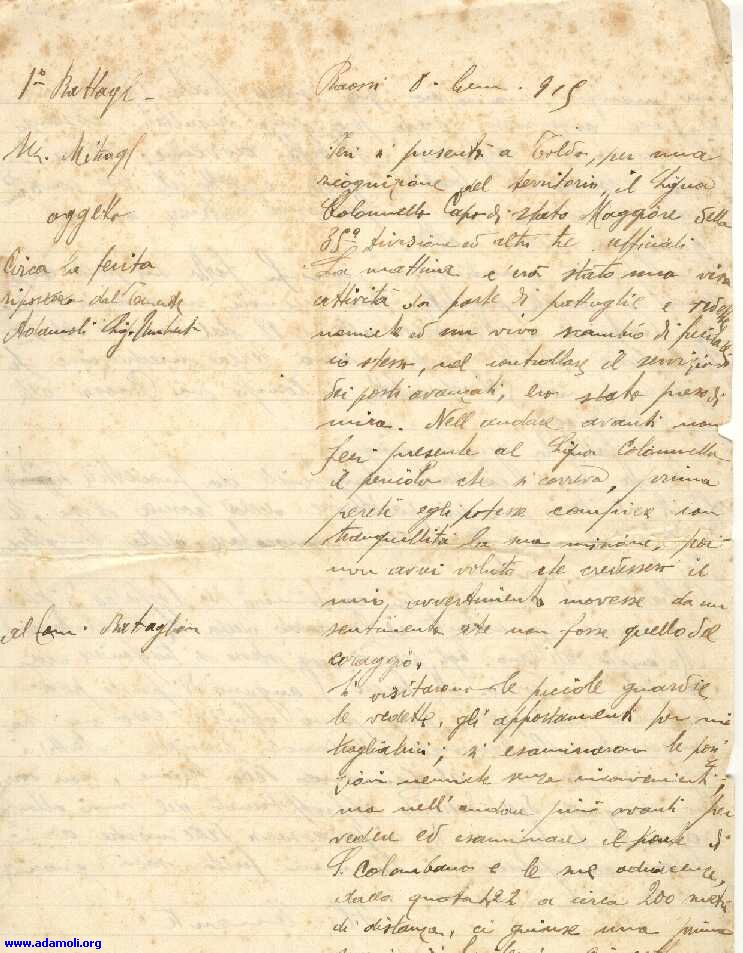 1º Battagl -
Mitragl
oggetto
Circa la ferita
riportata dal Tenente
Adamoli Sig. Umberto
al Com. Battaglion
8. Genn. 915
Ieri si presentò a Toldo, per una
ricognizione nel territorio, il Signor
Colonnello Capo di Stato Maggiore della
35ª divisione ed altri tre ufficiali
La mattina c'era stato una viva
attività da parte di pattuglie e vedette
nemiche ed un vivo scambio di fucilate
io stesso, nel controllare il servizio
dei posti avanzati, ero stato preso di
mira. Nell'andare avanti non
feci presente al Signor Colonnello
il pericolo che si correva, prima
perchè egli potesse compiere con
tranquillità la sua missione, poi
non avrei voluto che credessero il
mio avvertimento movesse da un
sentimento che non fosse quello del
coraggio.
Si visitarono le piccole guardie,
le vedette, gli appostamenti per mi
tragliatrici; si esaminarono le posi
zioni nemiche senza inconvenienti;
ma nell'andare più avanti per
vedere ed esaminare il paese di
S. Colombano e le sue adiacenze,
dalla quota 422 a circa 200 metri
di distanza, ci giunse una prima
www.adamoli.org